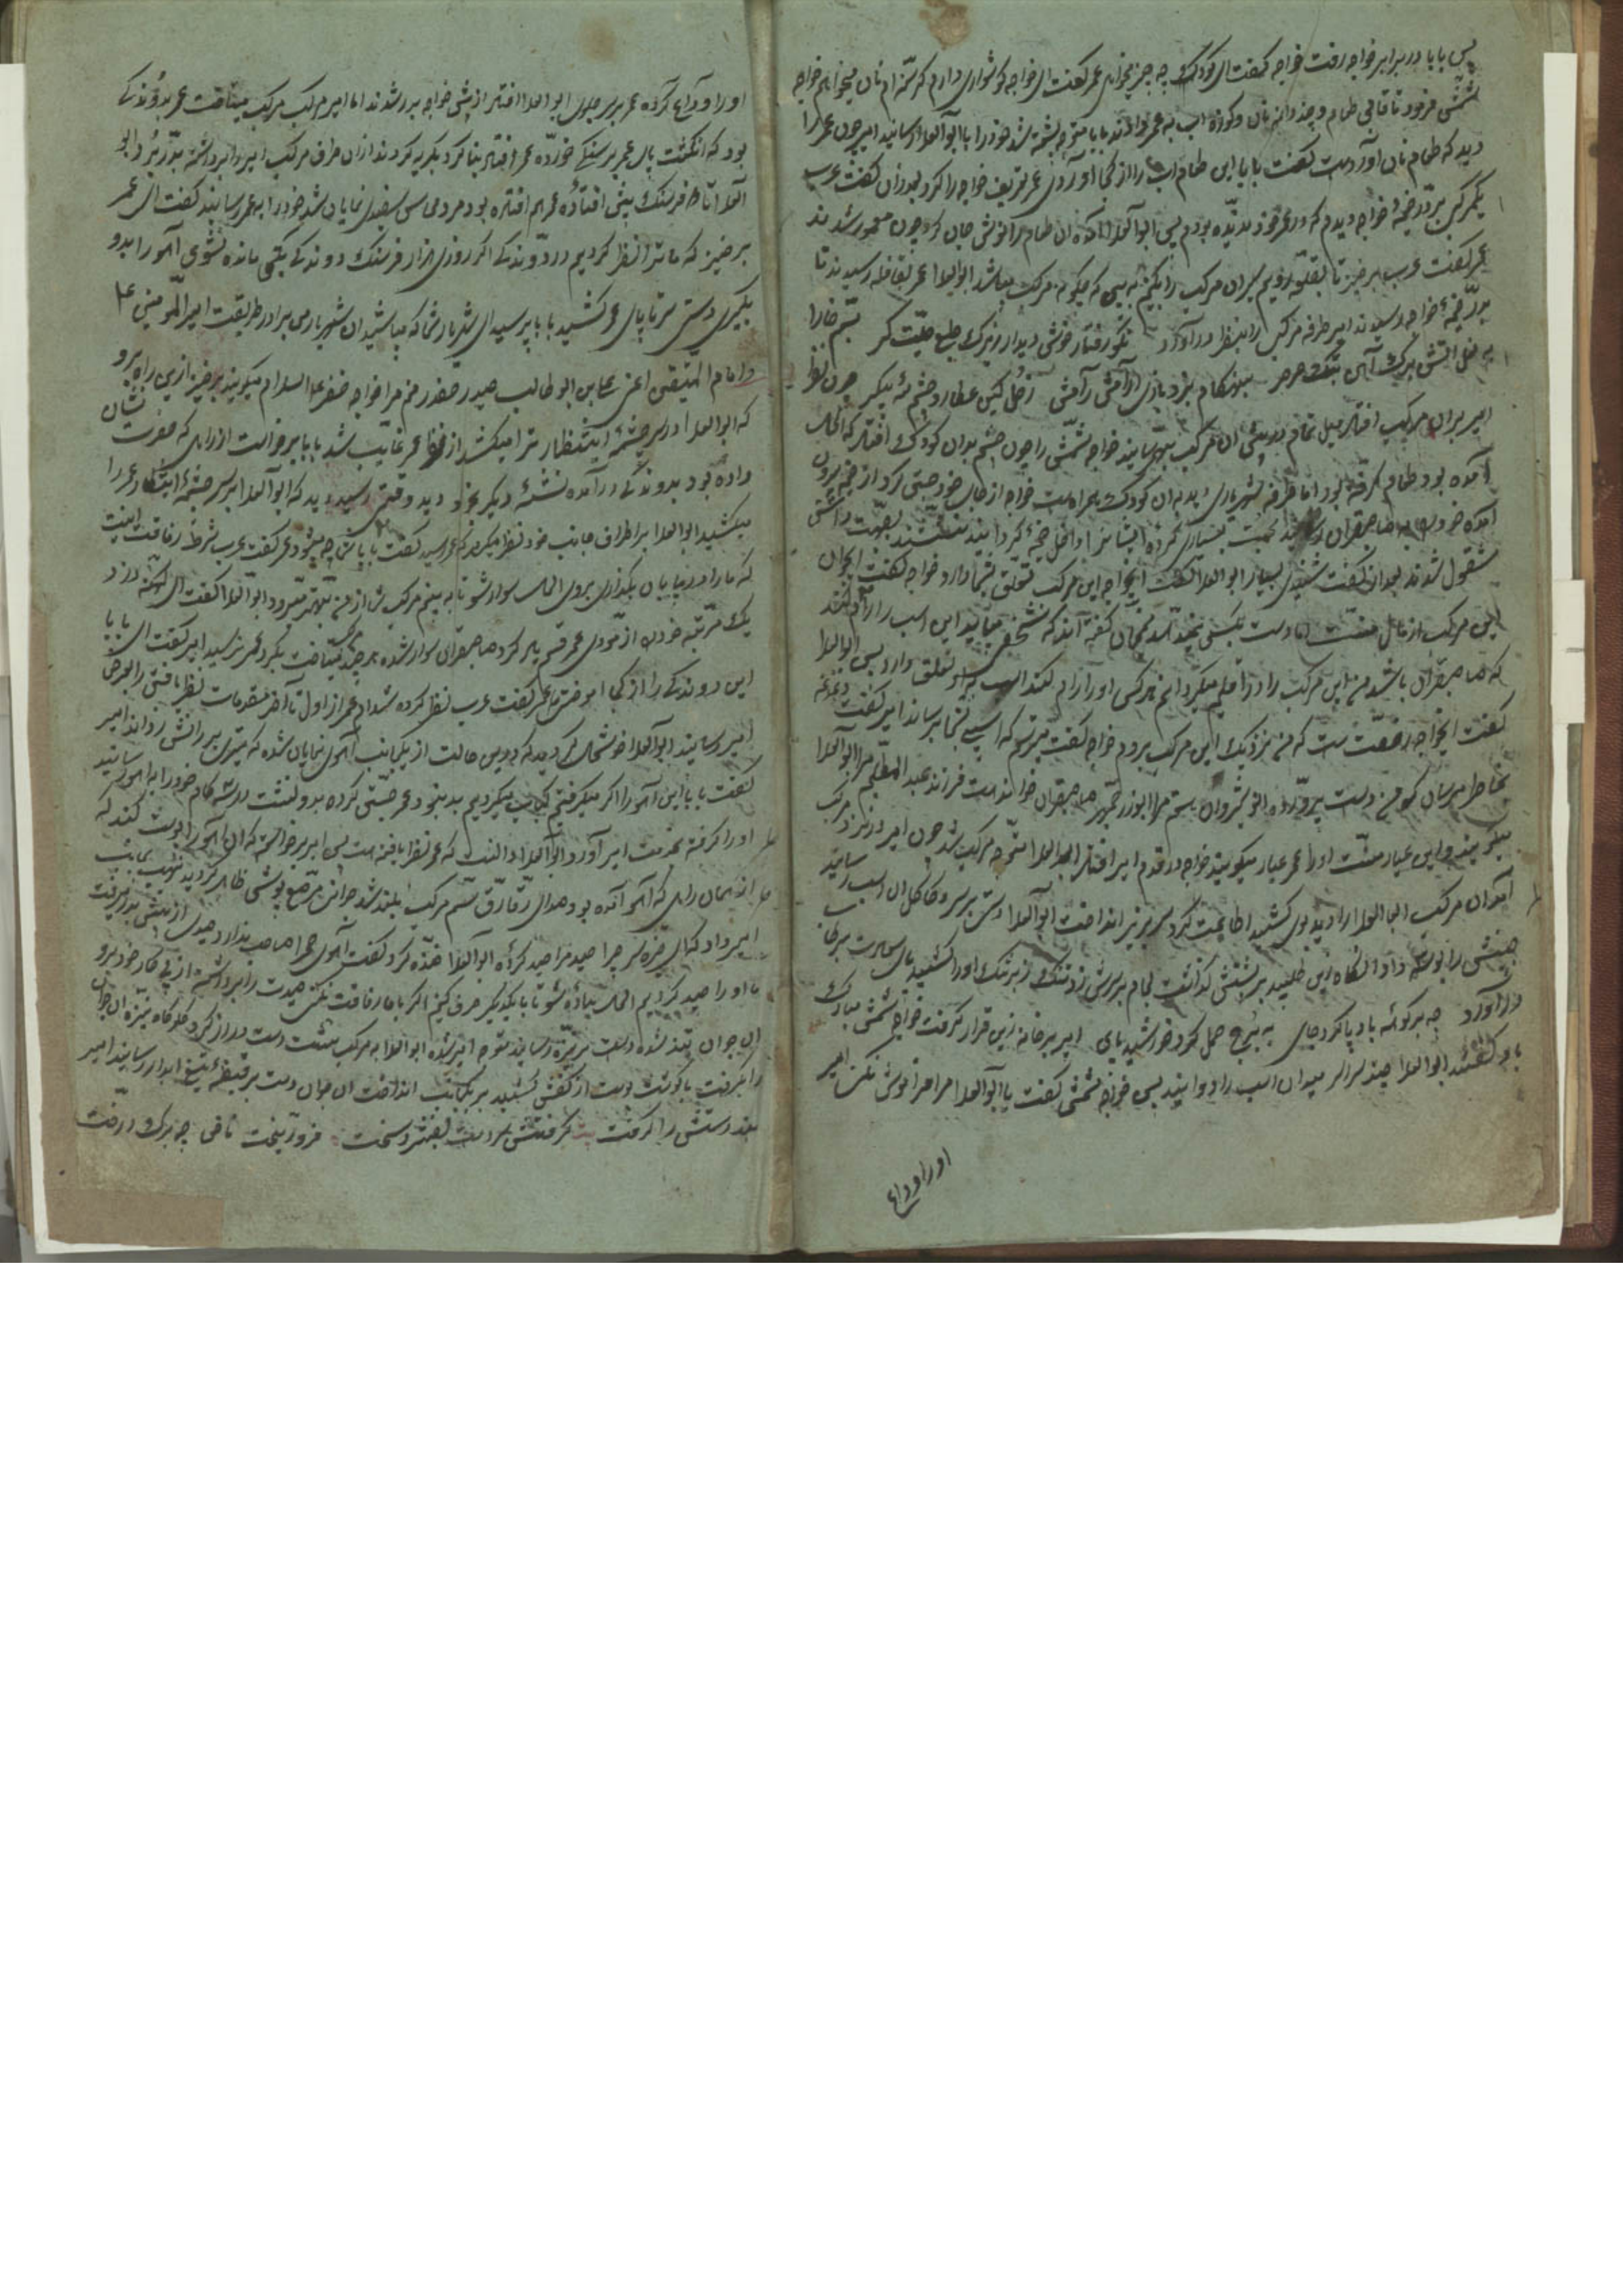 پس بابا در برابر خواجه رفت خواجه گفت ای کودک چه چیز میخواهی عمر گفت ای خواجه کوشواری دارم گرسنه ام نان میخواهم خواجه
شمشی فرمود تا قابی طعام و چند دانه نان و کوزه اب به عمر دادند بابا متوجه چشمه شد خود را با ابوالعلا رسانید امیر چون عمر را
دید که طعام نان آورده است گفت بابا این طعام اب را از کجا آوردی عمر تعریف خواجه را کرد بعد از ان گفت عرب
یکمرکبی بر در خیمهٔ خواجه دیدم که در عمر خود ندیده بودم پس ابوالعلا ان طعام را نوش جان کرد چون معمور شدند
عمر گفت عرب برخیز تا بقافله رویم سیران مرکب را بکنیم به بینی که چگونه مرکب میباشد ابوالعلا عمر بقافله رسیدند تا
بدر خیمهٔ خواجه رسیدند امیر طرفه مرکبی را بنظر در آورد نکو رفتار خوش دیدار زیرک طبع سم خارا
بهنکام
امیر بران مرکب افتاد میل تمام در پیش ان مرکب بهم رسانید خواجه شمشی را چون چشم بدان کودک افتاد که
آمده بود طعام گرفته بود اما طرفه شهریاری دید به ان کودک همراه است خواجه از جای خود جستی کرد از خیمه بیرون
آمده خود را به صاحبقران رسانید محبت بسیاری کرده ایشانرا داخل خیمه گردانید نشستند بصحبت داشتن
مشغول شدند بعد از گفت شنید بسیار ابوالعلا گفت ایخواجه این مرکب تعلق بشما دارد خواجه گفت ایجوان
این مرکب از مال منست اما دست بکسی نمیدهد منجمان گفته اند که شخصی میاید این اسب را رام کند
که صاحبقران باشد من این مرکب را در اقلیم میگردانم هر کس او را رام کند اسب به او تعلق دارد پس ابوالعلا
گفت ایخواجه رخصت هست که من نزدیک این مرکب بروم خواجه گفت میترسم که اسیبی بشما برساند امیر گفت دغدغه
بخاطر مرسان که من دست پرورده انوشیروان هستم مرا ابوزرجمهر صاحبقران خوانده است فرزند عبدالمطلبم مرا ابوالعلا
میگویند و این عیار منست او را عمر عیار میگویند خواجه در قدم امیر افتاد ابوالعلا متوجه مرکب شد چون امیر در نزد مرکب
آمد ان مرکب ابوالعلا را دید بوی کشید اطاعت کرد سر بزیر انداخت ابوالعلا دستی بر سر و کاکل ان اسب رسانید
جبینش را بوسه داد انگاه زین طلبید بر پشتش گذاشت لجام بر سرش زد تنک زبر تنک او را کشید پای سعادت بر رکاب
در آورد چه بر کوهه باد پا کرد جای به برج حمل کرد خورشید پای امیر بر خانه زین قرار گرفت خواجه شمشی مبارک
باد گفتند ابوالعلا چند سراسر میدان اسب را دوانید پس خواجه شمشی گفت یا ابوالعلا مرا فراموش نکن امیر
اورا وداع
او را وداع کرده عمر بر سر جلوی ابوالعلا افتاد از پیش خواجه بدر شدند اما امیر مرکب میتاخت عمر بدوندگی
بود که انگشت پای عمر بر سنگی خورده عمر افتاد بنا کرد بگریه کردن از ان طرف مرکب امیر را برداشته بدر برد ابو
العلا تا فرسنک پیش افتاده عمر هم افتاده بود مرد محاسن سفیدی نمایان شد خود را به عمر رسانید گفت ای عمر
برخیز که ما ترا نظر کردیم در دوندگی اگر روزی هزار فرسنک دوندگی بکنی مانده نشوی آهو را بدو
بگیری دستی سر تا پای عمر کشید بابا پرسید ای شهریار شما که میباشید ان شهریار من برادر طریقت امیر المومنین
و امام المتقین اعنی علی ابن ابو طالب حیدر صفدرم مرا خواجه خضر علیه السلام میگویند برخیز ازین راه برو
که ابوالعلا در سر چشمهٔ انتظار ترا میکشد از نظر عمر غایب شد بابا برخاست از راهی که حضرت نشان
داده بود بدوندگی در آمده نشئهٔ دیگر بخود دید وقتی رسید دید که ابوالعلا بر سر چشمهٔ انتظار عمر را
میکشید ابوالعلا بر اطراف جانب خود نظر میکرد که عمر رسید گفت باباش چه میشود عمر گفت عرب شرط رفاقت اینست
که ما را در بیابان بگذاری بروی الحال سوار شو تا به بینم مرکب تو از من بهتر میرود ابوالعلا گفت ای
یک مرتبه خود را از موذی عمر قسم یاد کرد صاحبقران سوار شده هر چند میتاخت بگرد عمر نرسید امیر گفت ای بابا
این دوندگی را از کجا اموختی عمر گفت عرب نظر کرده شدم عمر از اول تا آخر مقدمات نظر یافتن را بعرض
امیر رسانید ابوالعلا خوشحال گردید که در این حالت از یکجانب آهوی نمایان شده که تیری بر رانش زده اند امیر
گفت بابا این آهو را اگر میگرفتیم کباب میکردیم بد نبود عمر جستی کرده بدو نشست در سه گام خود را به آهو رسانید
او را گرفته بخدمت امیر آورد ابوالعلا دانست که عمر نظر یافته است پس امیر برخاسته که ان آهو را پوست کند که
از همان راهی که آهو آمده بود صدای رقارق سم مرکب بلند شد جوانی مرصع پوشی ظاهر گردید نهیب بجانب
امیر داد که ای خیره سر چرا صید مرا صید کردهٔ ابوالعلا خنده کرد گفت آهوی صحرا صاحب ندارد صیدی از پیش بدر میرفت
ما او را صید کردیم الحال پیاده شو تا با یکدیگر حرف زنیم اگر با ما رفاقت نکنی صیدت را برداشته از پی کار خود برو
ان جوان تند شده دست بر نیزه رسانید متوجه امیر شده ابوالعلا به مرکب نشست دست دراز کرد گلوگاه نیزه ان جوان
را بگرفت دست از کفش کشید بر یکجانب انداخت ان جوان دست بر قبضهٔ تیغ ابدار رسانید امیر
بند دستش را گرفت بیت گرفتش سر دست بفشرد سخت فرو ریخت ناخن چو برک درخت